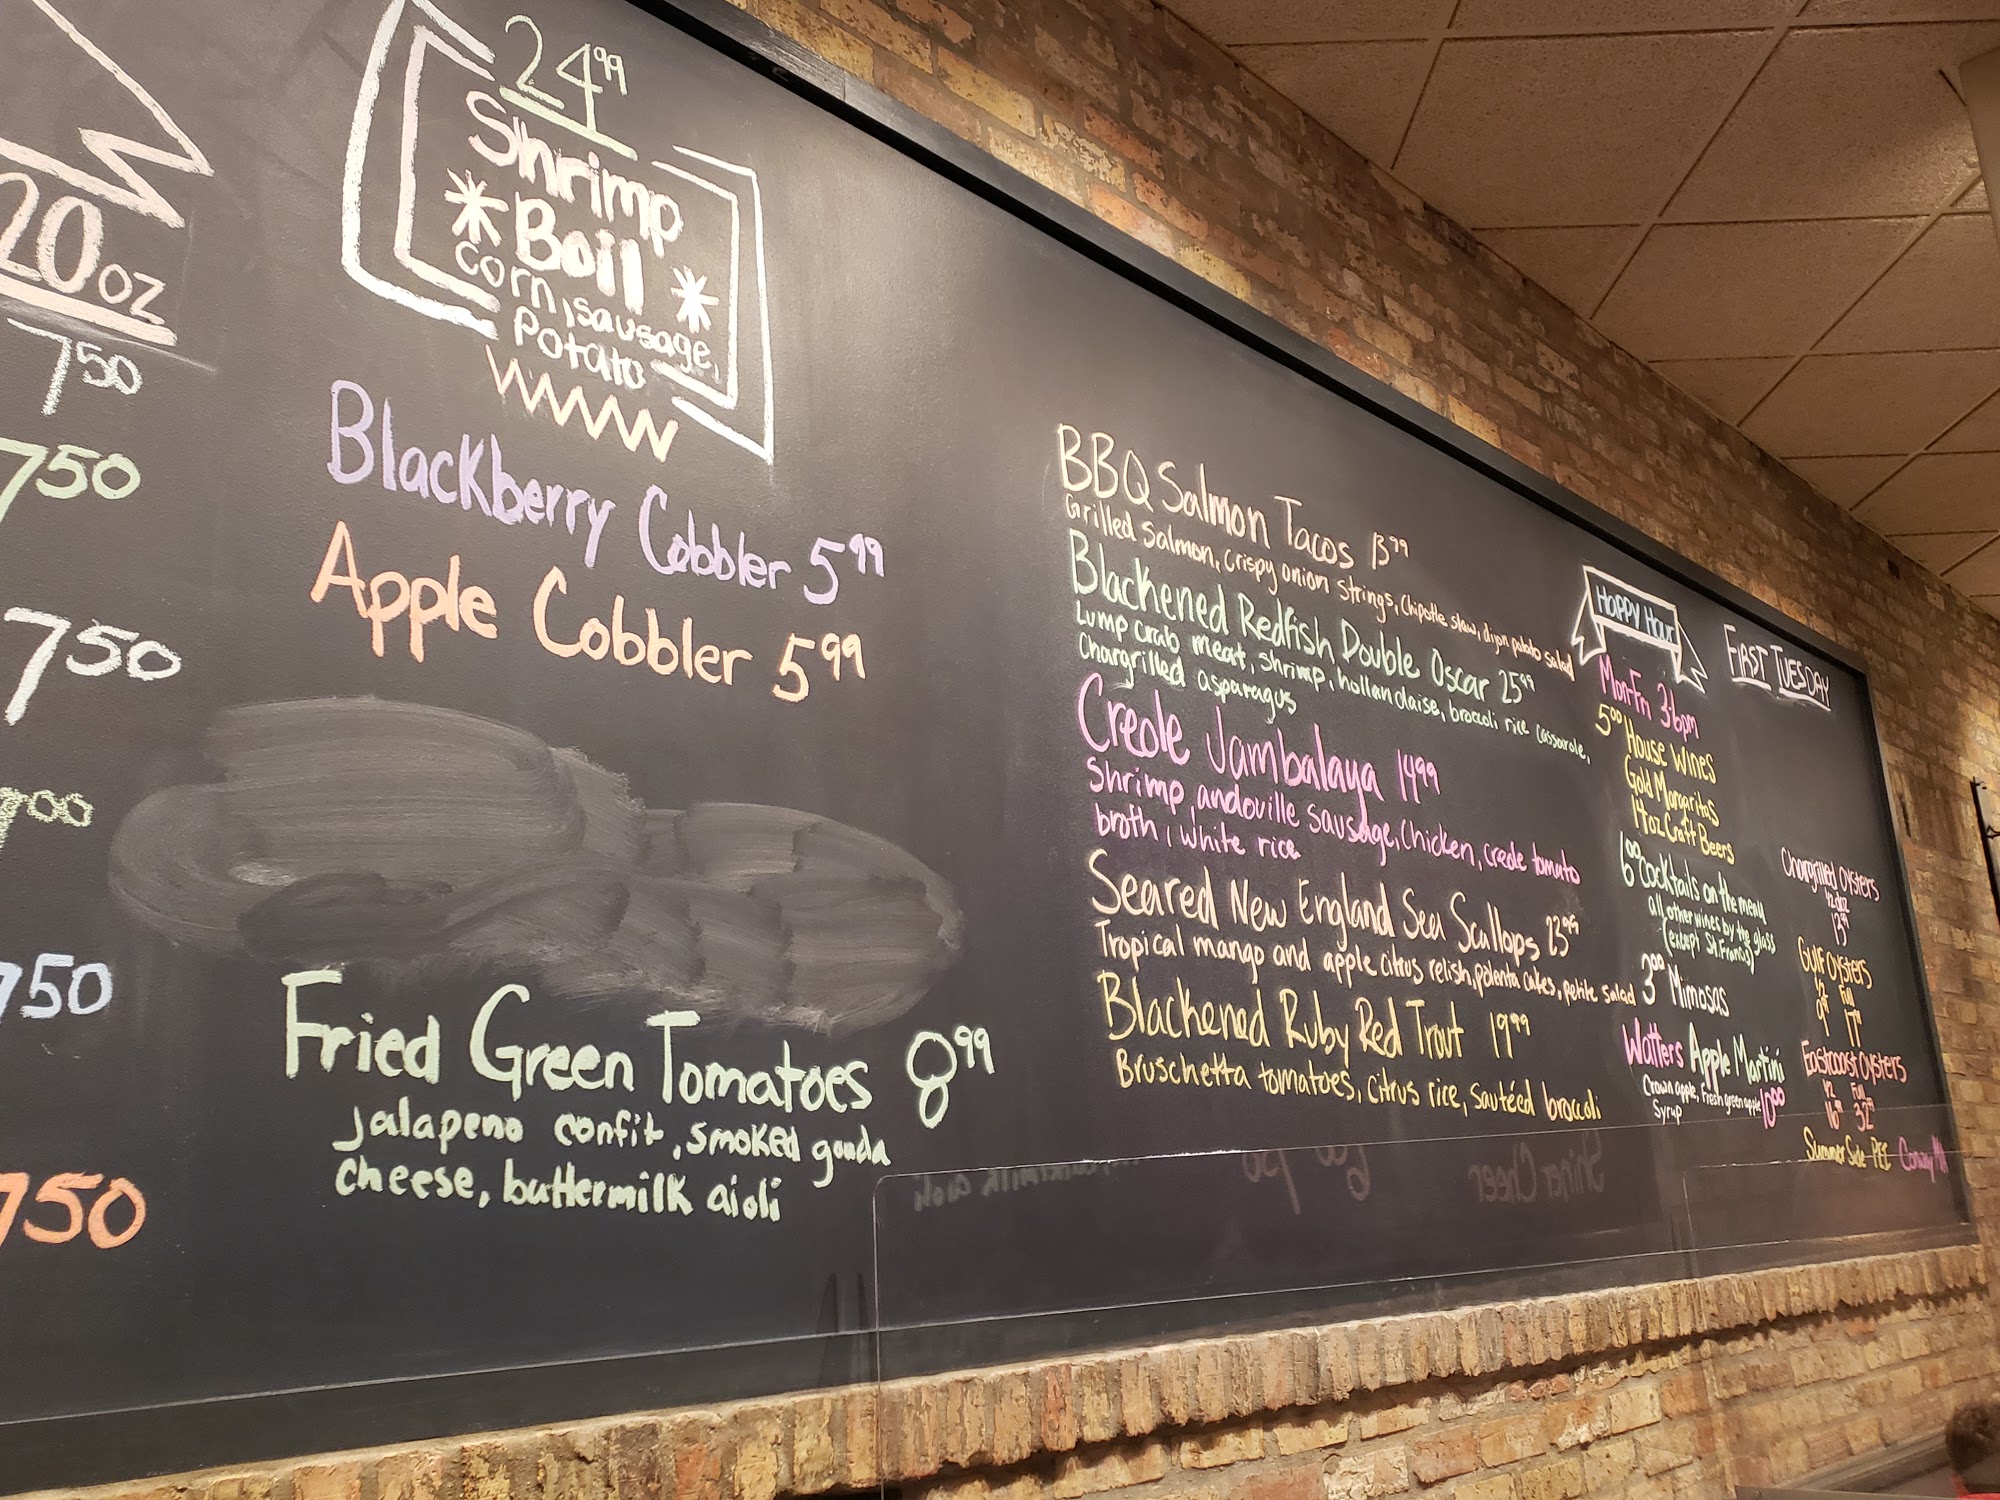 20oz
7 50
7 50
7 50
00
7 50
7 50
24 99
Shrimp
Boil
corn, sausage,
Potato
Blackberry Cobbler 5 99
Apple Cobbler 5 99
Fried Green Tomatoes 8 99
jalapeno confit, smoked gouda
cheese, buttermilk aioli
BBQ Salmon Tacos 13 99
Grilled Salmon, crispy onion strings, chipotle slaw, dijon potato salad
Blackened Redfish Double Oscar 25 99
Lump crab meat, shrimp, hollandaise, broccoli rice casserole,
Chargrilled asparagus
Creole Jambalaya 14 99
Shrimp andoville sausage, chicken, creole tomato
broth, white rice
Seared New England Sea Scallops 23 99
Tropical mango and apple citrus relish, polenta cakes, petite salad
Blackened Ruby Red Trout 19 99
Bruschetta tomatoes, citrus rice, sautéed broccoli
Happy Hour
Mon-Fri 3-6pm
5 00 House Wines
Gold Margaritas
14oz Craft Beers
6 00 Cocktails on the menu
all other wines by the glass
(except St. Francis)
3 00 Mimosas
Watters Apple Martini
Crown apple, Fresh green apple 10 00
Syrup
First Tuesday
Chargrilled Oysters
1/2 doz
13 99
Gulf Oysters
1/2 Full
9 17
Eastcoast Oysters
1/2 Full
16 32
Summer Side PEI